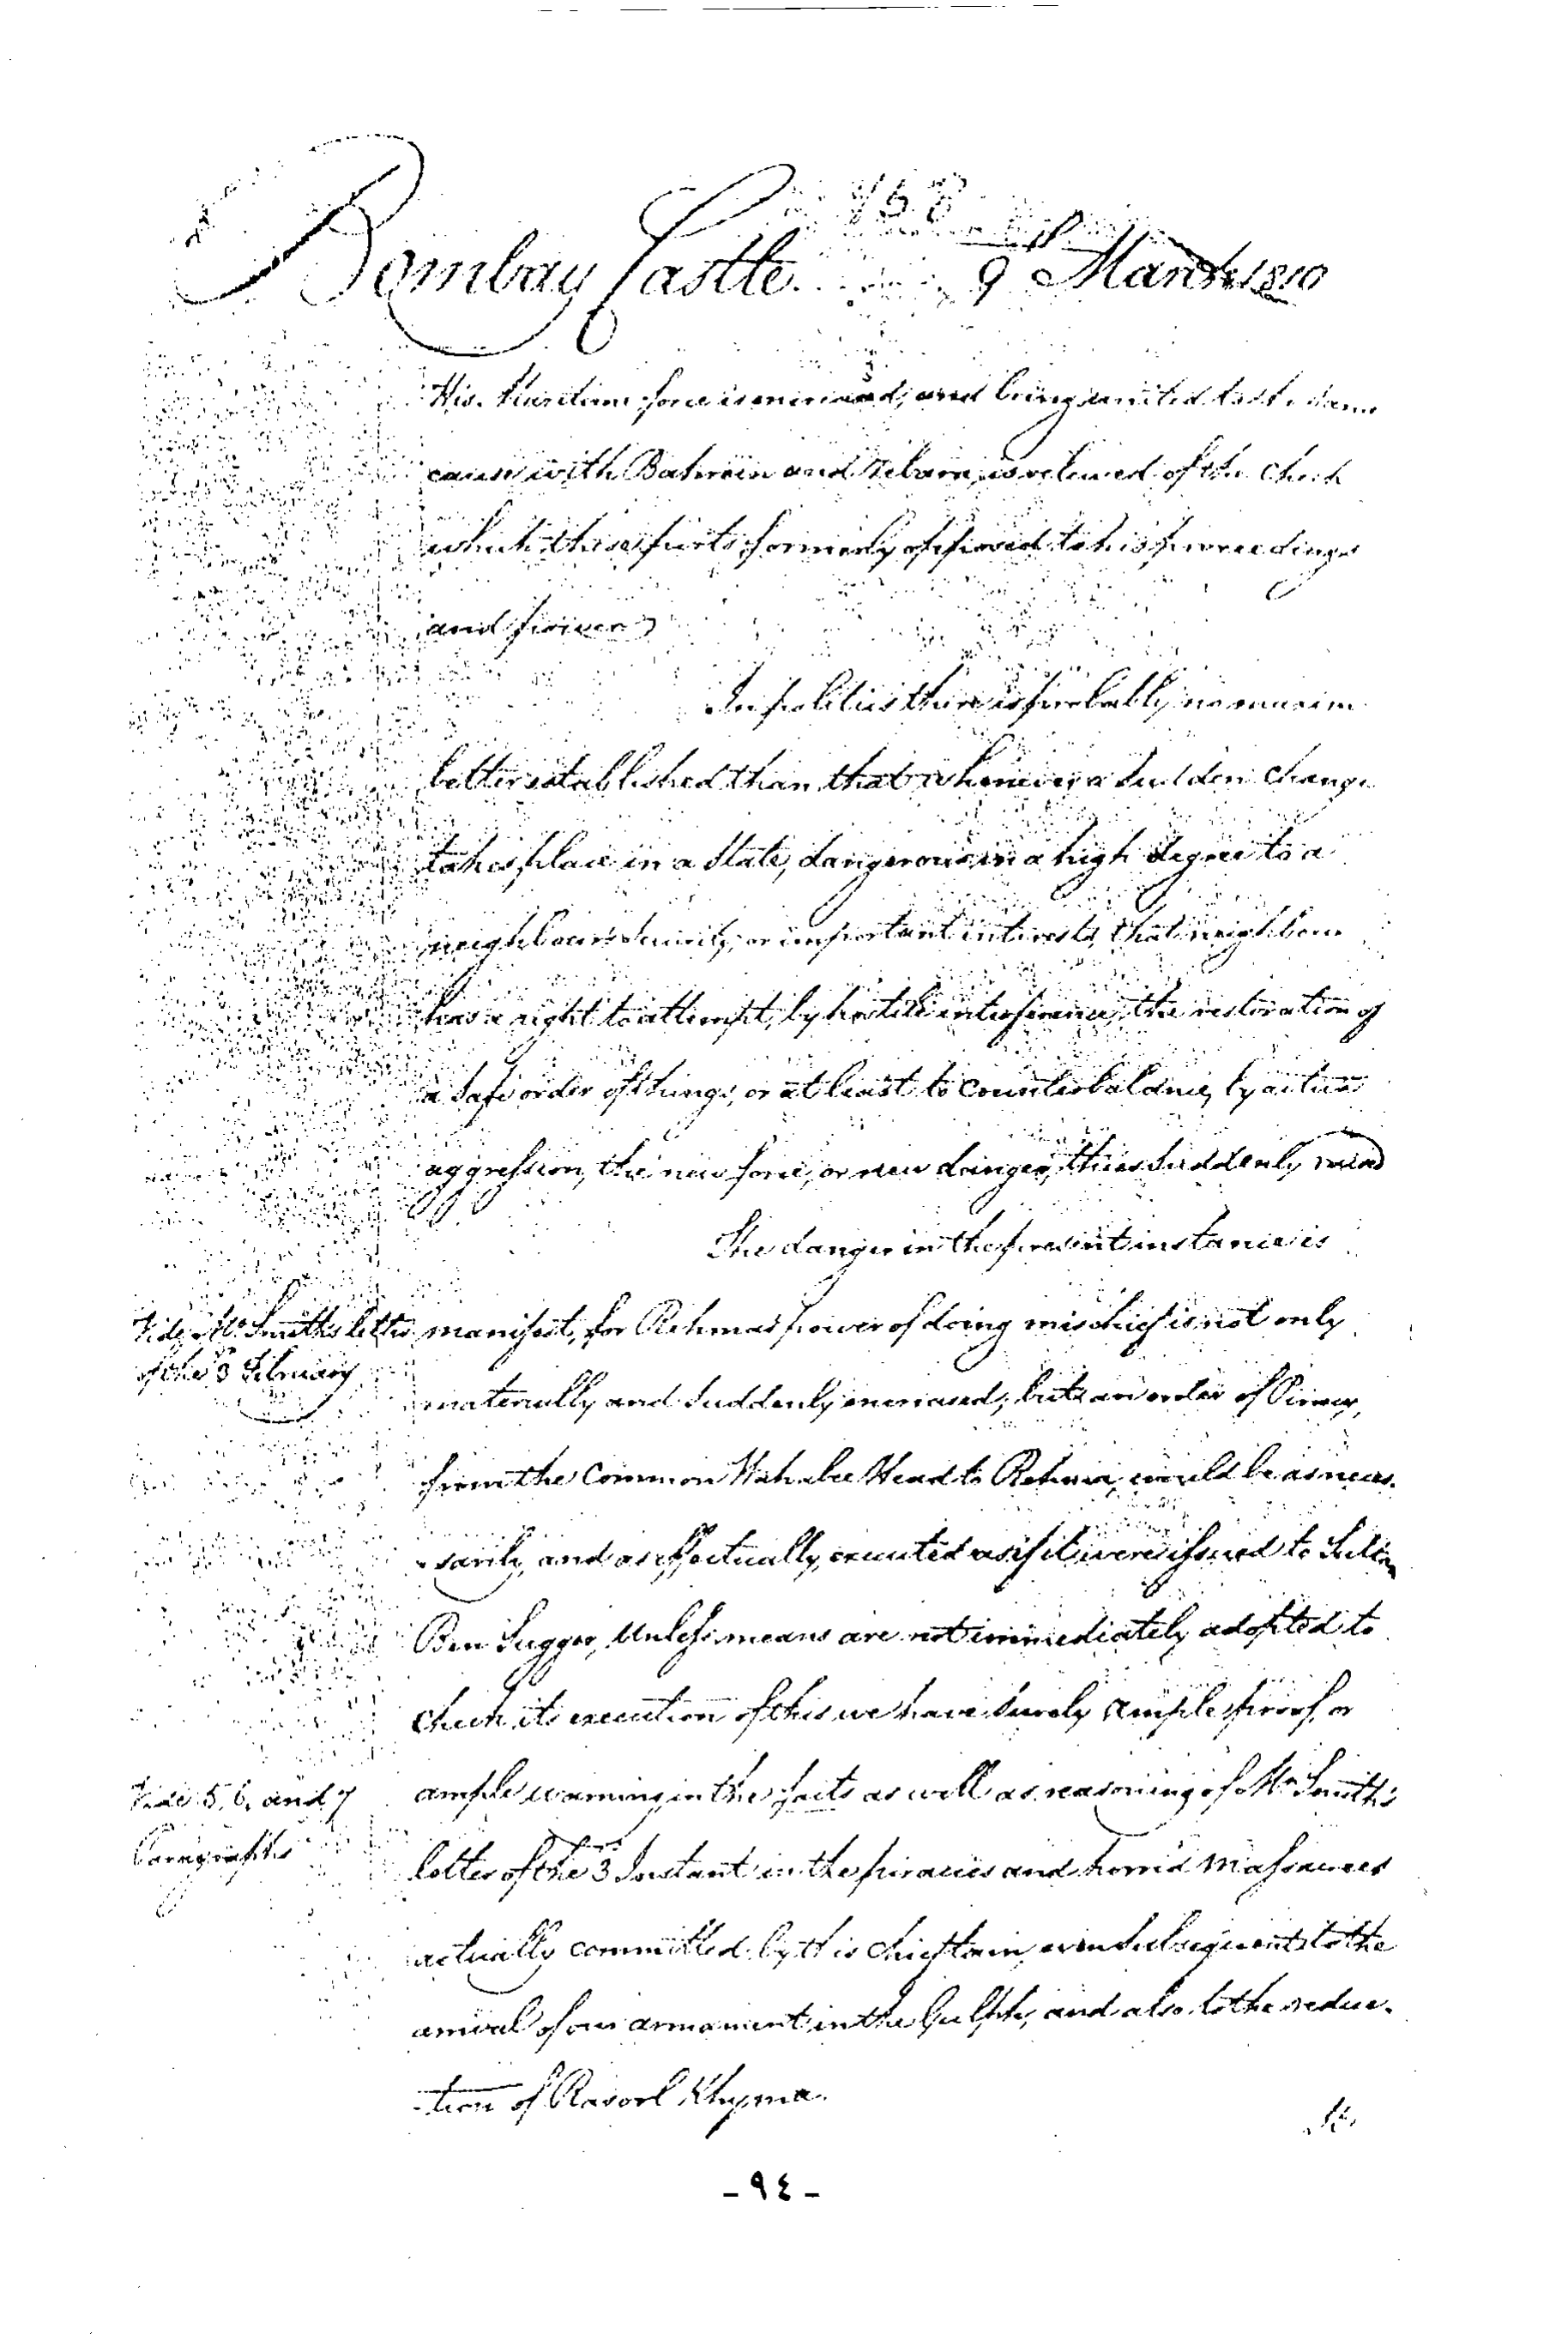 Bombay Castle. 9th March 1810
His Maritime force is increased, and being united to the same
cause with Bahrein and Zebara, is relieved of the check
which these ports formerly opposed to his proceedings
and power
In politics there is probably no maxim
better established than that whenever a sudden change
takes place in a State, dangerous in a high degree to a
neighbours Security, or important interests, that neighbour
has a right to attempt, by hostile interference, the restoration of
a Safe order of things, or at least to counterbalance, by active
aggression, the new force, or new danger, thus suddenly
The danger in the present instance is
Vide Mr Smiths letter
of the 3 February
manifest, for Rehmas power of doing mischief is not only
materially and Suddenly increased; but an order of Piracy,
from the Common Wahabee Head to Rehma, would be as neces-
-sarily, and as effectually, executed as if it were issued to
Ben Sugger, Unless means are not immediately adopted to
check its execution of this we have surely ample proof, or
Vide 5, 6, and 7
Paragraphs
ample warning in the facts as well as reasoning of Mr Smith's
letter of the 3 Instant in the piracies and horrid Massacres
actually committed by this chieftain, even Subsequent to the
arrival of our armament in the Gulph, and also to the reduc-
-tion of Rasool Khyma.
-٩٤-